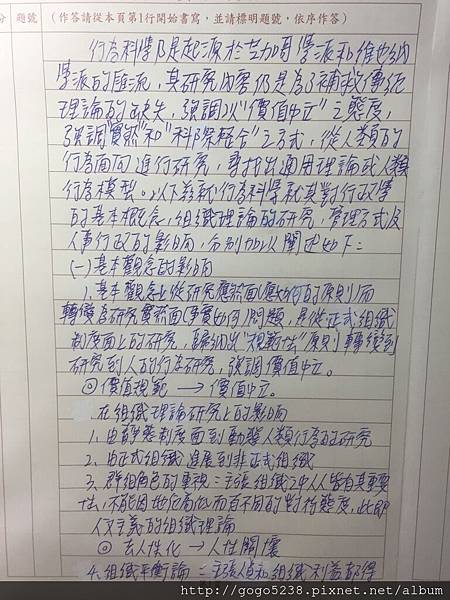 分 題號 (作答請從本頁第1行開始書寫,並請標明題號,依序作答)
行為科學乃是起源於芝加哥學派和維也納
學派的匯流,其研究內容仍是為了補救傳統
理論的缺失,強調以"價值中立"之態度,
強調"實然"和"科際整合"之方式,從人類的
行為面向進行研究,尋找出通用理論或人類
行為模型。以下茲就行為科學就其對行政學
的基本概念,組織理論的研究,管理方式及
人事行政的影響,分別加以闡述如下:
(一)基本觀念的影響
1.基本觀念上從研究應然面(應如何)的原則而
轉變為研究實然面(事實如何)問題,是從正式組織
制度面上的研究,歸納出"規範性"原則轉變到
研究到人的行為研究,強調價值中立。
◎價值規範→價值中立。
在組織理論研究上的影響
1.由靜態制度面到動態人類行為的研究
2.由正式組織進展到非正式組織
3.群組角色的重視:主張組織之中人人皆有其重要
性,不能因地位高低而有不同的對待態度,此即
人文主義的組織理論
◎去人性化→人性關懷
4.組織平衡論:主張人員和組織利益都得
http://gogo5238.pixnet.net/album